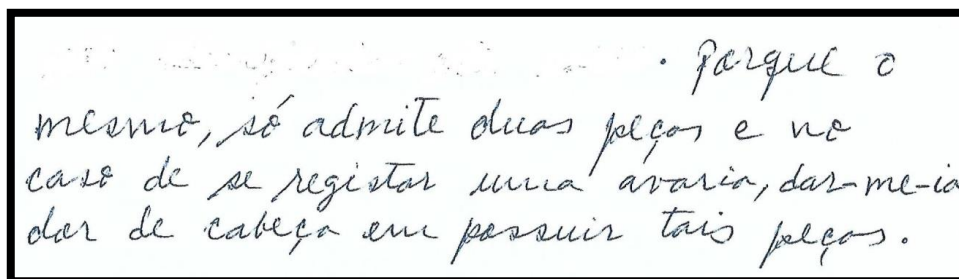 . Porque o
mesmo, só admite duas peças e no
caso de se registar uma avaria, dar-me-ia
dor de cabeça em possuir tais peças.